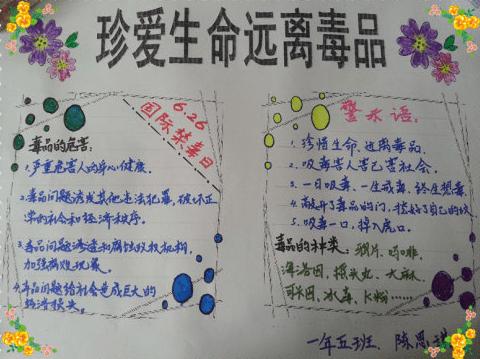 珍爱生命远离毒品
6.26
国际禁毒日
毒品的危害:
1.严重危害人的身心健康.
2.毒品问题诱发其他违法犯罪,破坏正
常的社会和经济秩序.
3.毒品问题渗透和腐蚀政权机构,
加强腐败现象.
4.毒品问题给社会造成巨大的
经济损失.
警示语:
1.珍惜生命,远离毒品.
2.吸毒害人害己害社会.
3.一日吸毒,一生戒毒,终生想毒.
4.敲开了毒品的门,挖好了自己的坟
5.吸毒一口,掉入虎口.
毒品的种类:鸦片,吗啡
海洛因,摇头丸,大麻
可卡因,冰毒,K粉......
一年五班 陈思